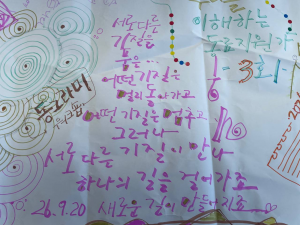 서로다른
기질을
품은...
어떤 기질은
멀리 돌아가고
어떤 기질은 멈추고
그러나
서로 다른 기질이 만나
하나의 길을 걸어가죠
26.9.20 새로운 길이 만들어지죠
이해하는
동료지원가
1-3회
동그라미